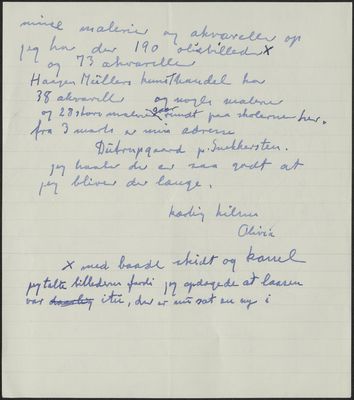 mine malerier og akvareller op
jeg har der 190 oliebilleder x
og 73 akvareller
Haagen Müllers kunsthandel har
38 akvarell og nogle malerier
og 28 store malerier gaar rundt paa skolerne her.
fra 3 marts er min adresse
Dütrupgaard p. Snekkersten.
jeg haaber der er saa godt at
jeg bliver der længe.
kærlig hilsen
Olivia
x med baade skidt og kanel
jeg talte billederne fordi jeg opdagede at laasen
var itu, der er nu sat en ny i